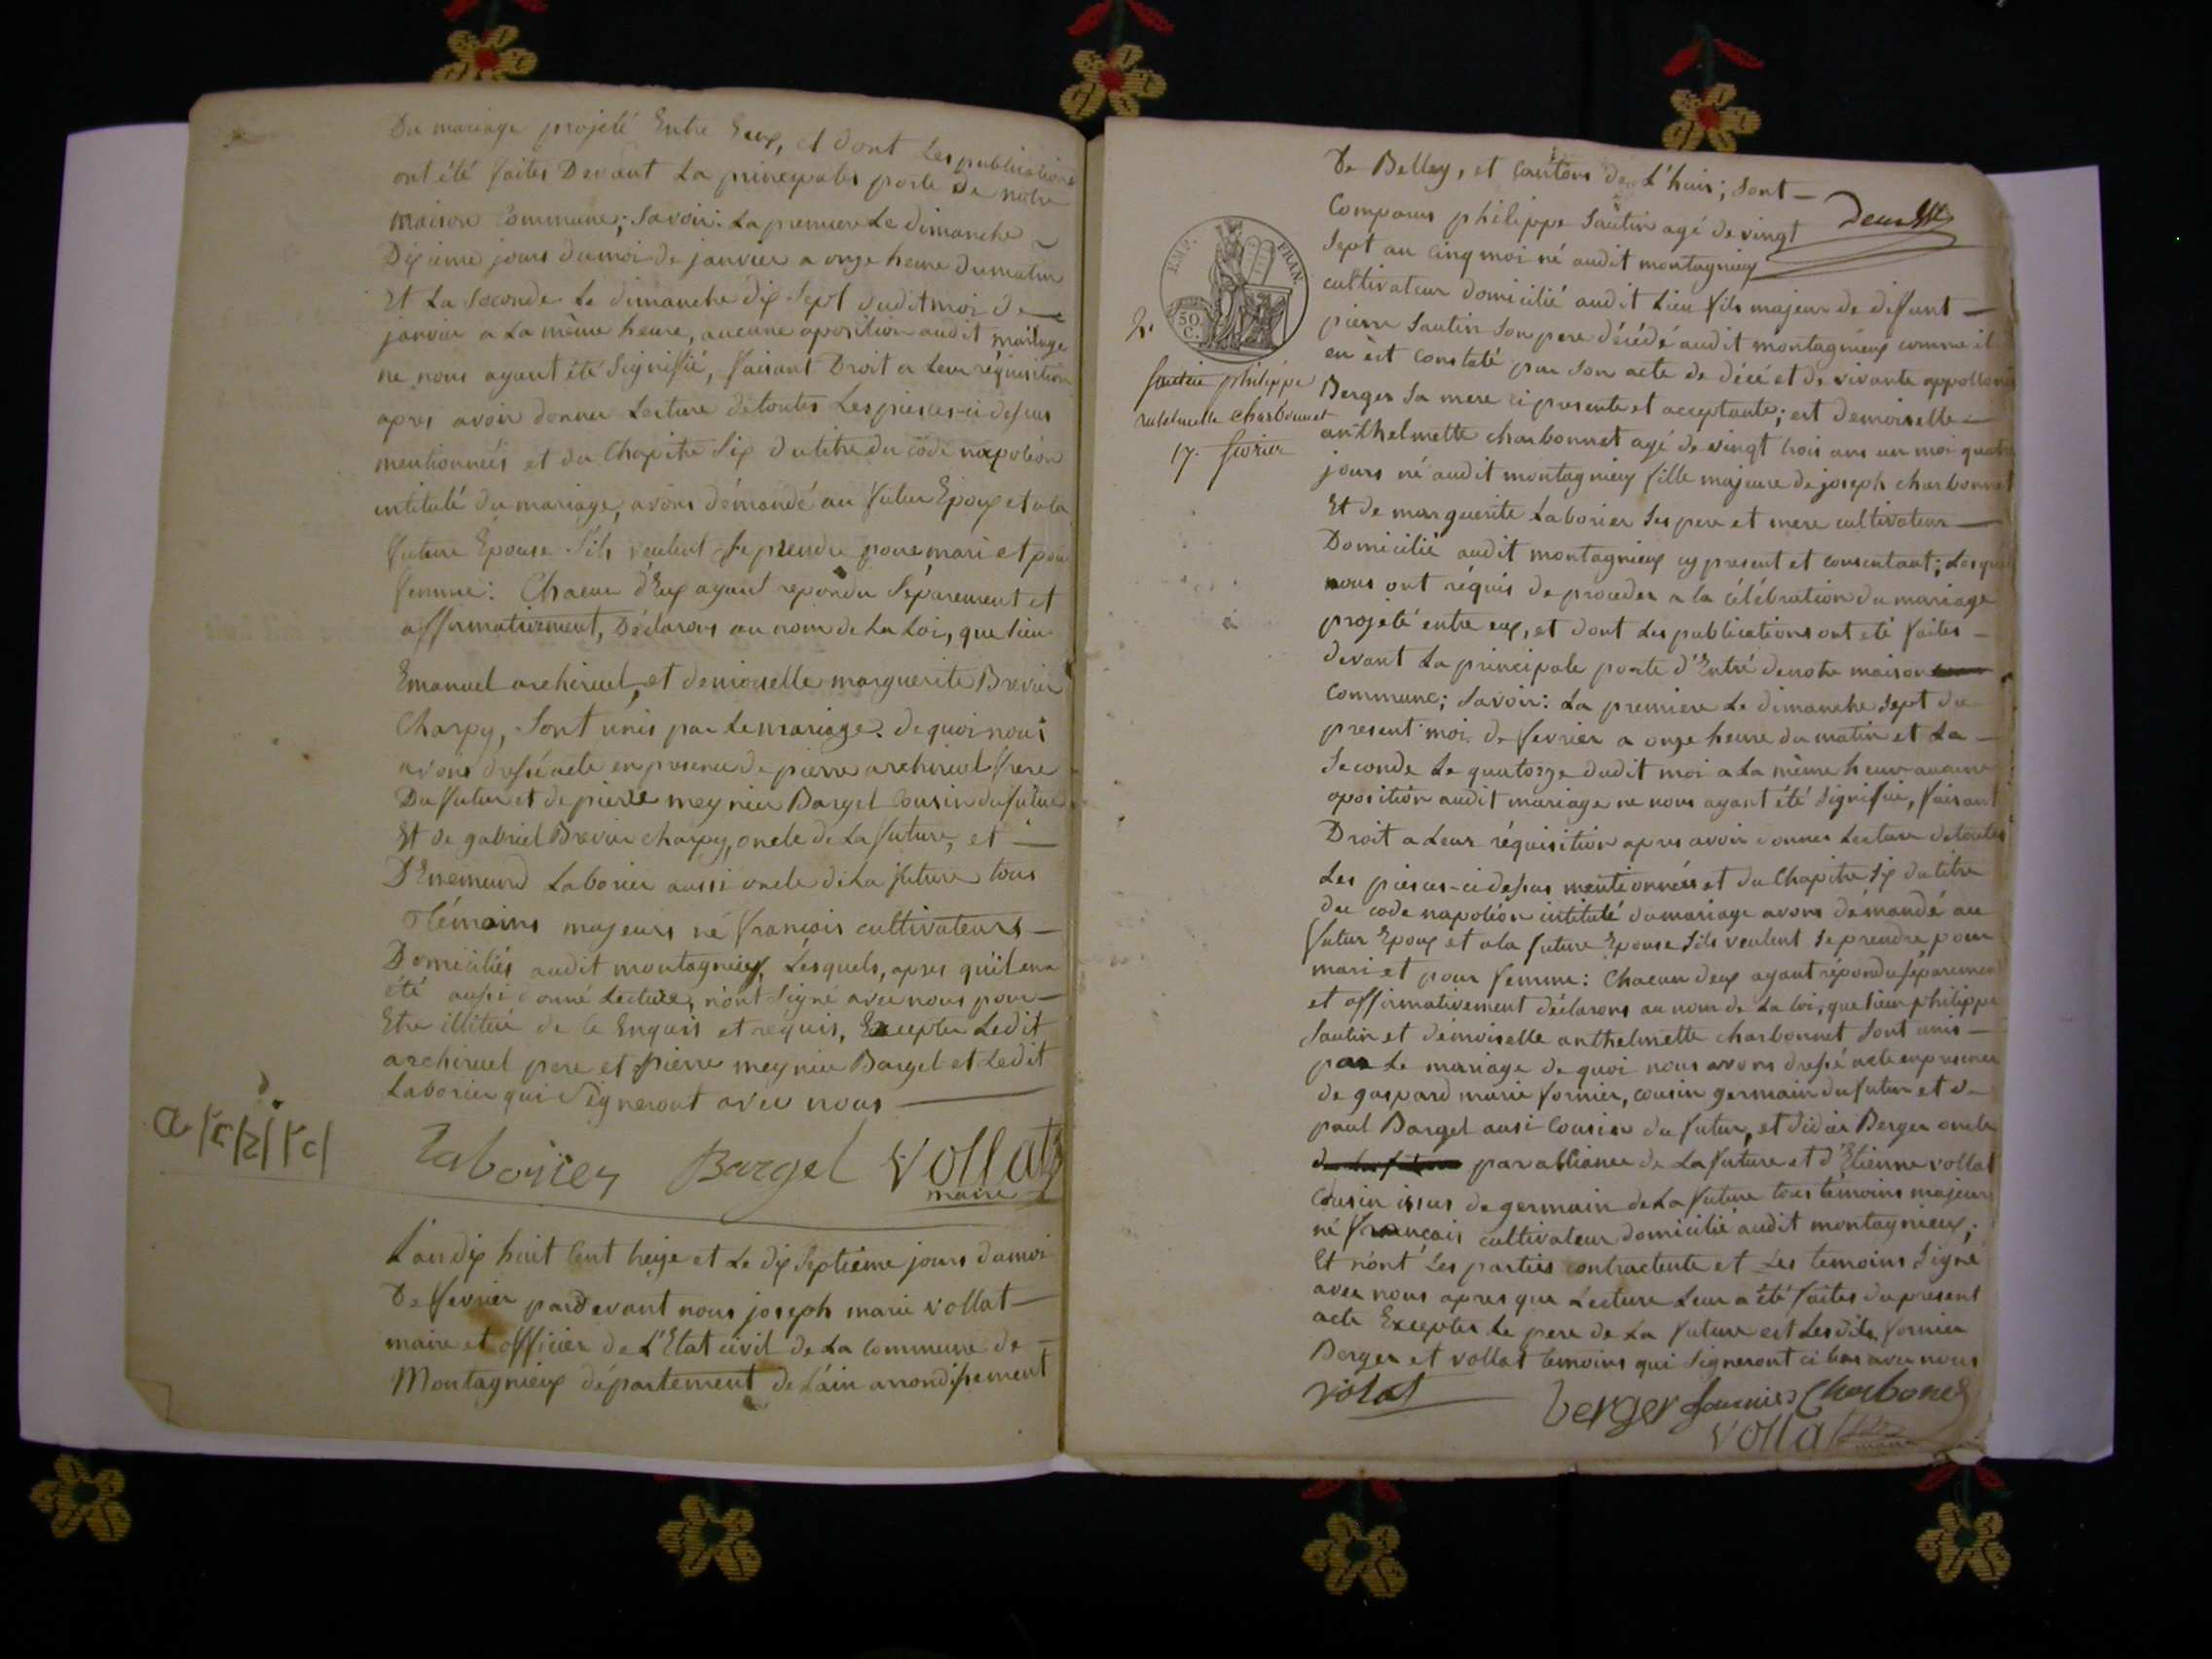 Du mariage projeté Entre Eux, et dont Les publications
ont été faites Devant La principales porte de notre
maison Commune; Savoir: La premiere Le dimanche
Dixième jours du moi de janvier a onze heure du matin
Et La Seconde Le dimanche dix Sept dudit moi de
janvier a La même heure, aucune oposition audit mariage
ne nous ayant été Signifié, faisant Droit a Leur réquisition
apres avoir donner Lecture de toutes Les pieces-ci dessus
mentionnées et du Chapitre Six du titre du code napoléon
intitulé du mariage, avons démandé au futur Epoux et a la
future Epouse S'ils veulent Se prendre pour mari et pour
femme: Chacun d'Eux ayant repondu Séparement et
affirmativement, Déclarons au nom de La Loi, que Sieur
Emanuel archiruel, et demoiselle marguerite Brevin
Charpy, Sont unis par Le mariage. de quoi nous
avons dressé acte en presence de pierre archiruel frere
Du futur et de pierre meynier Bargel Cousin du futur
Et de gabriel Brevin charpy, oncle de La future, et
D'Enemund Laborier aussi oncle de La future tous
témoins majeurs né françois cultivateurs
Domiciliés audit montagnieux, Lesquels, apres qu'il en a
été aussi donné Lecture, n'ont Signé avec nous pour
Etre illitéré de ce Enquis et requis, Excepter Ledit
archiruel pere et pierre meynier Bargel et Ledit
Laborier qui Signeront avec nous
Laborier Bargel Vollat
maire
L'an dix huit Cent treize et Le dix Septieme jours du moi
De fevrier pardevant nous joseph marie vollat
maire et officier de L'Etat civil de La commune de
Montagnieux département de L'ain arrondissement
De Belley, et Cantons de L'huis; Sont
Comparus philippe Sautin agé de vingt
Sept an Cinq moi né audit montagnieux
cultivateur domicilié audit Lieu fils majeur de difunt
pierre Sautin Son pere décédé audit montagnieux comme il
en est constaté par Son acte de décé et de vivante appollonie
Berger Sa mere ci presente et acceptante; est demoiselle
anthelmette charbonnet agé de vingt trois ans un moi quatre
jours né audit montagnieux fille majeure de joseph charbonnet
Et de marguerite Laborier Ses pere et mere cultivateur
Domicilié audit montagnieux cy present et consentant; Lesquels
nous ont réquis de proceder a la célébration du mariage
projeté entre eux, et dont Les publications ont eté faites
devant La principale porte d'Entré de notre maison
Commune; Savoir: La premiere Le dimanche Sept du
present moi de fevrier a onze heure du matin et La
Seconde Le quatorze dudit moi a La même heure aucune
oposition audit mariage ne nous ayant été Signifié, faisant
Droit a Leur réquisition apres avoir donner Lecture de toutes
Les pieces-ci dessus mentionnées et du Chapitre Six du titre
du code napoléon intitulé du mariage avons démandé au
futur Epoux et a la future Epouse S'ils veulent Se prendre pour
mari et pour femme: Chacun deux ayant répondu séparement
et affirmativement déclarons au nom de La Loi, que Sieur philippe
Sautin et démoiselle anthelmette charbonnet Sont unis
par Le mariage de quoi nous avons dressé acte en presence
de gaspard marie fornier, cousin germain du futur et de
paul Bargel ausi Cousin du futur, et didier Berger oncle
par alliance de La future et d'Etienne vollat
Cousin issus de germain de La future tous témoins majeurs
né françois cultivateur domicilié audit montagnieux;
Et n'ont Les parties contractente et Les temoins Signé
avec nous apres que Lecture Leur a été faites du present
acte Excepter Le pere de La future est Lesdits fornier
Berger et vollat temoins qui Signeront ci bas avec nous
volat berger fournier Charbonet
Vollat
maire
EMP. FRAN.
50 C.
2.
Sautin philippe
anthelmette charbonnet
17. fevrier